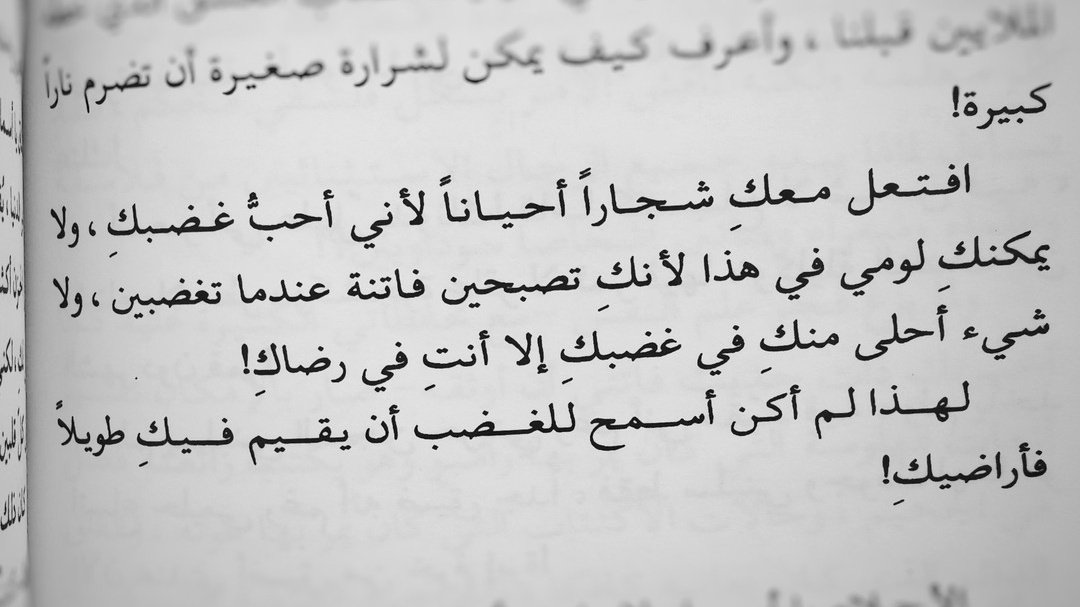 الملايين قبلنا ، وأعرف كيف يمكن لشرارة صغيرة أن تضرم ناراً
كبيرة!
افـتـعل مـعكِ شـجـاراً أحـيـانـاً لأني أحبُّ غـضـبكِ ، ولا
يمكنكِ لومي في هذا لأنكِ تصبحين فاتنة عندما تغضبين ، ولا
شيء أحلى منكِ في غضبكِ إلا أنتِ في رضاكِ!
لـهـذا لم أكن أسـمح للغـضـب أن يـقـيم فـيـكِ طويلاً
فأراضيكِ!